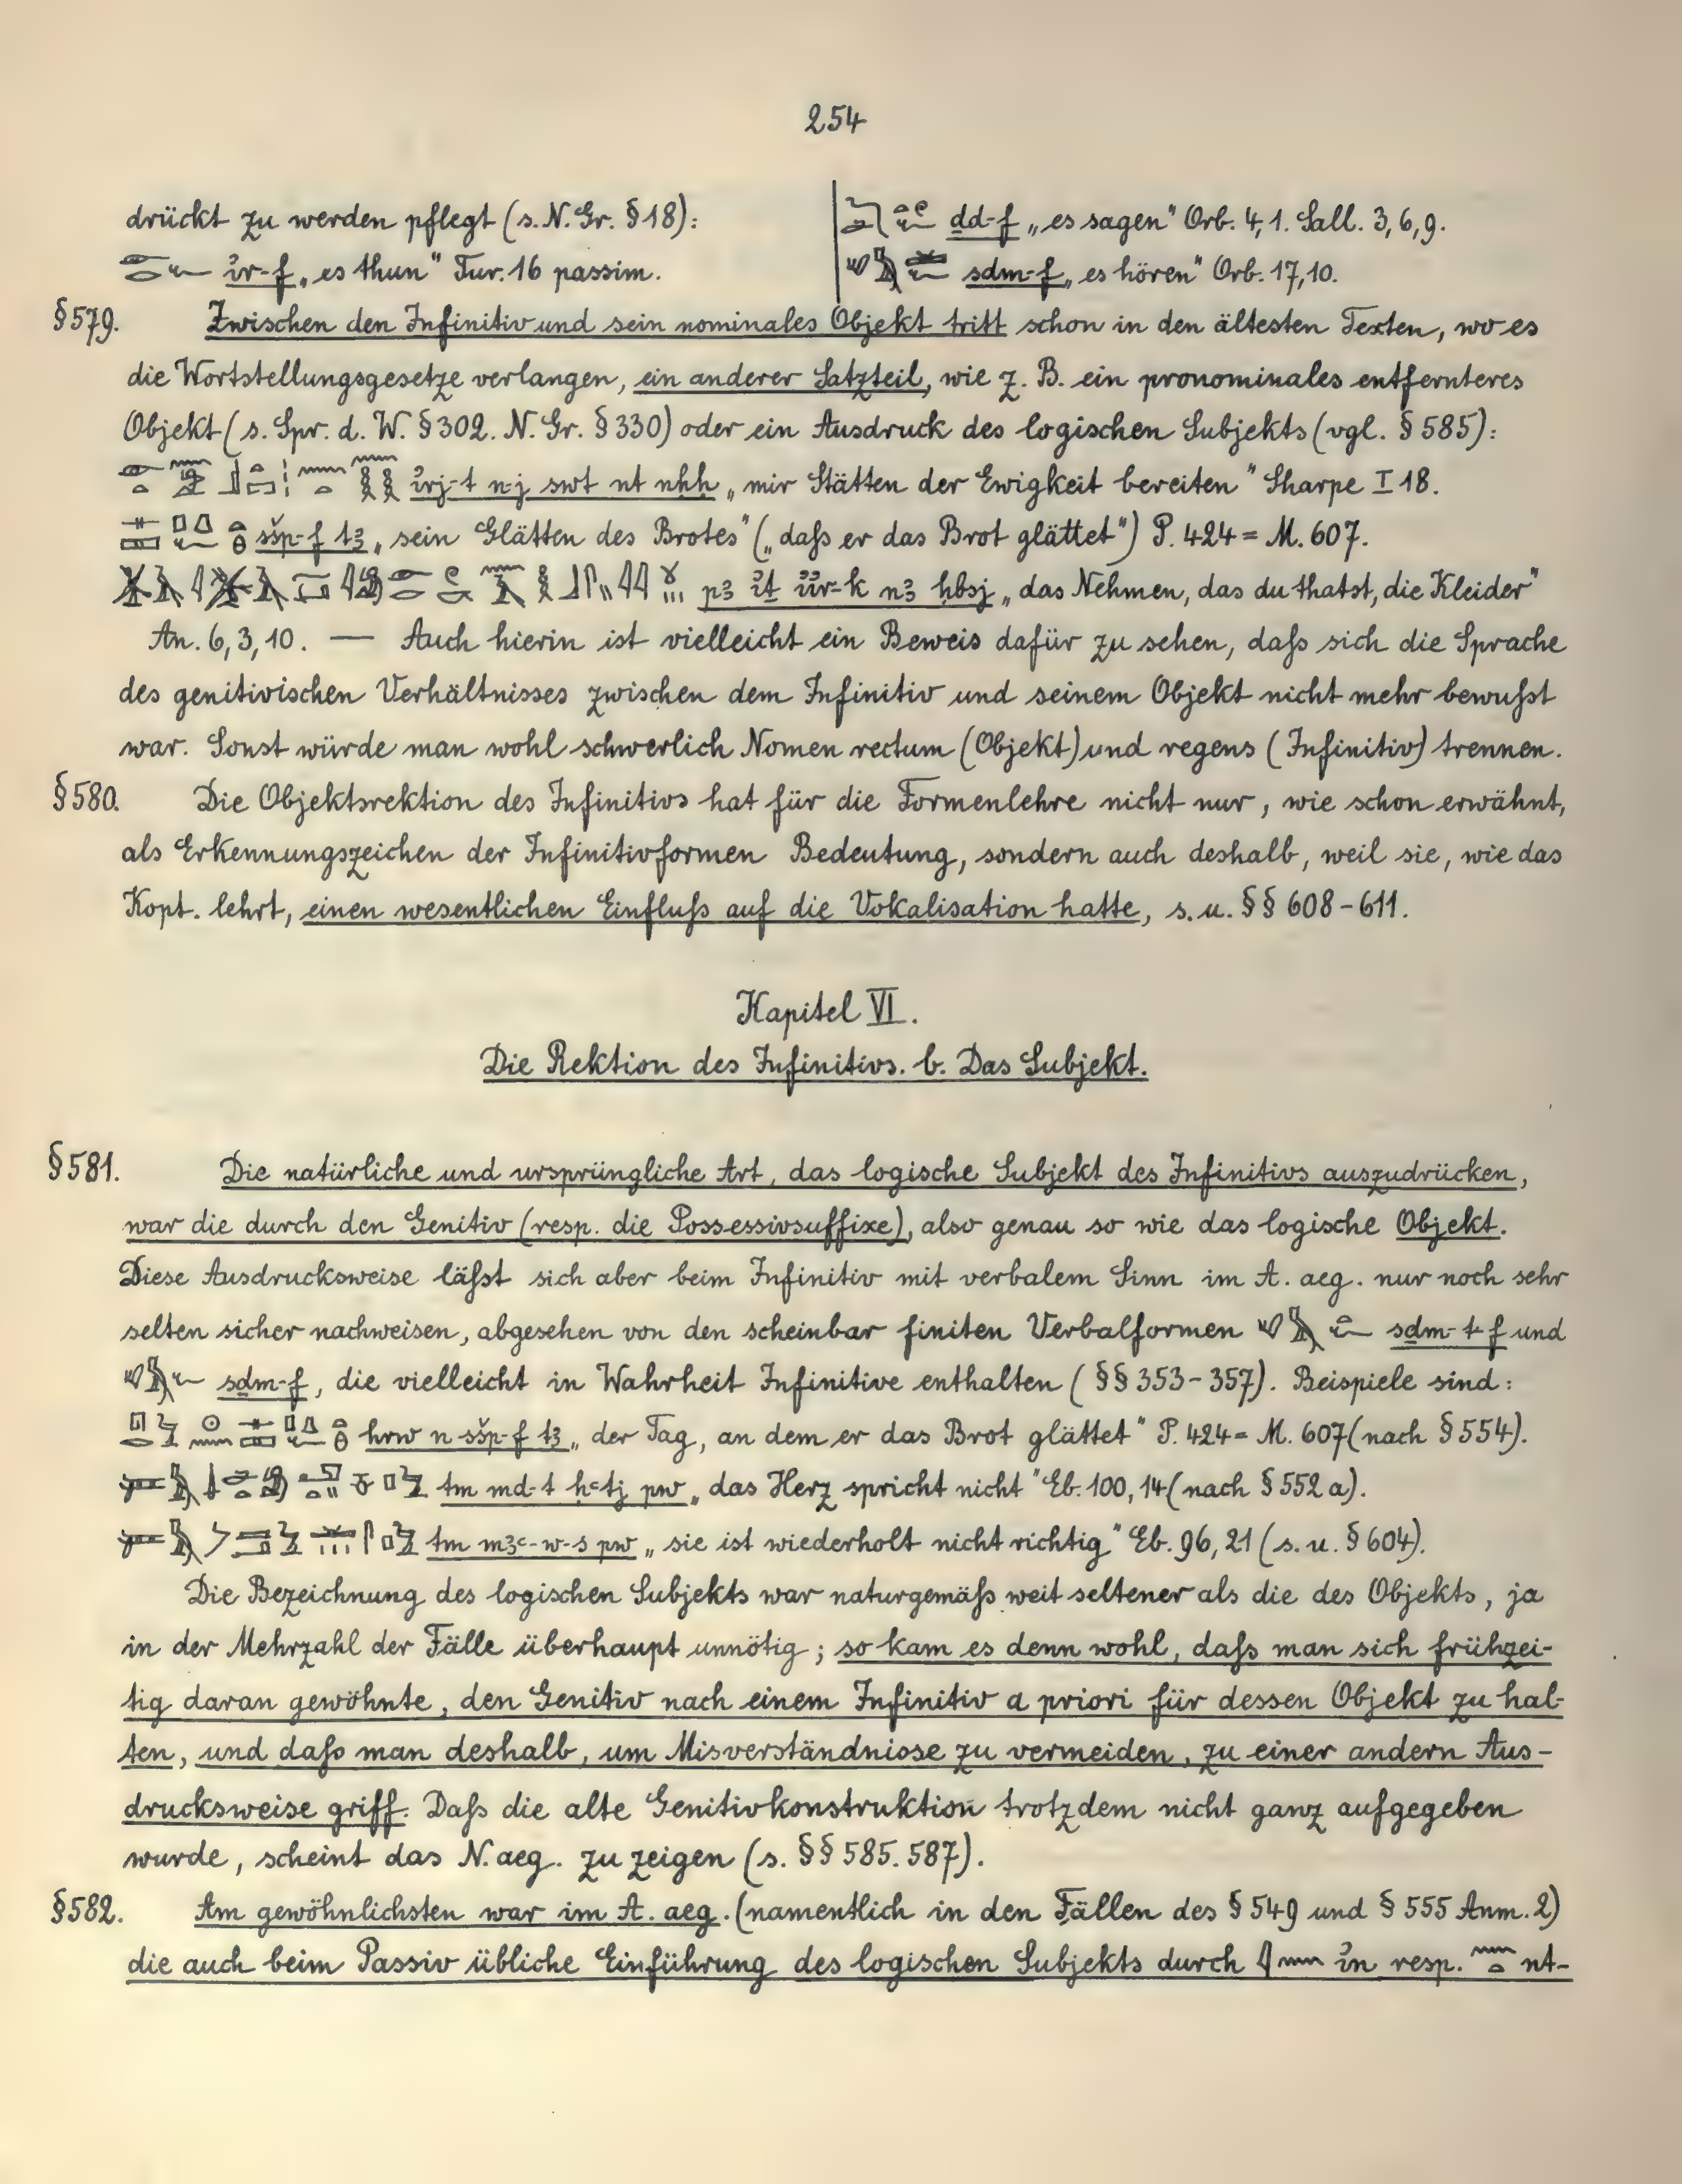 254
drückt zu werden pflegt (s. N. Gr. § 18):
ỉr-f „es thun" Tur. 16 passim.
ḏd-f „es sagen" Orb. 4, 1. Sall. 3, 6, 9.
sḏm-f „es hören" Orb. 17, 10.
§ 579. Zwischen den Infinitiv und sein nominales Objekt tritt schon in den ältesten Texten, wo es
die Wortstellungsgesetze verlangen, ein anderer Satzteil, wie z. B. ein pronominales entfernteres
Objekt (s. Spr. d. W. § 302. N. Gr. § 330) oder ein Ausdruck des logischen Subjekts (vgl. § 585):
ỉrj-t n-j swt nt nḥḥ „mir Stätten der Ewigkeit bereiten" Sharpe I 18.
sšp-f tꜣ „sein Glätten des Brotes" („daſs er das Brot glättet") P. 424 = M. 607.
pꜣ ỉṯ ỉỉr-k nꜣ ḥbsj „das Nehmen, das du thatst, die Kleider"
An. 6, 3, 10. — Auch hierin ist vielleicht ein Beweis dafür zu sehen, daſs sich die Sprache
des genitivischen Verhältnisses zwischen dem Infinitiv und seinem Objekt nicht mehr bewuſst
war. Sonst würde man wohl schwerlich Nomen rectum (Objekt) und regens (Infinitiv) trennen.
§ 580. Die Objektsrektion des Infinitivs hat für die Formenlehre nicht nur, wie schon erwähnt,
als Erkennungszeichen der Infinitivformen Bedeutung, sondern auch deshalb, weil sie, wie das
Kopt. lehrt, einen wesentlichen Einfluſs auf die Vokalisation hatte, s. u. §§ 608-611.
Kapitel VI.
Die Rektion des Infinitivs. b. Das Subjekt.
§ 581. Die natürliche und ursprüngliche Art, das logische Subjekt des Infinitivs auszudrücken,
war die durch den Genitiv (resp. die Possessivsuffixe), also genau so wie das logische Objekt.
Diese Ausdrucksweise läſst sich aber beim Infinitiv mit verbalem Sinn im A. aeg. nur noch sehr
selten sicher nachweisen, abgesehen von den scheinbar finiten Verbalformen sḏm-t-f und
sḏm-f, die vielleicht in Wahrheit Infinitive enthalten (§§ 353-357). Beispiele sind:
hrw n sšp-f tꜣ „der Tag, an dem er das Brot glättet" P. 424 = M. 607 (nach § 554).
tm md-t ḥꜥtj pw „das Herz spricht nicht" Eb. 100, 14 (nach § 552 a).
tm mꜣꜥ-w-s pw „sie ist wiederholt nicht richtig" Eb. 96, 21 (s. u. § 604).
Die Bezeichnung des logischen Subjekts war naturgemäſs weit seltener als die des Objekts, ja
in der Mehrzahl der Fälle überhaupt unnötig; so kam es denn wohl, daſs man sich frühzei-
tig daran gewöhnte, den Genitiv nach einem Infinitiv a priori für dessen Objekt zu hal-
ten, und daſs man deshalb, um Misverständnisse zu vermeiden, zu einer andern Aus-
drucksweise griff. Daſs die alte Genitivkonstruktion trotzdem nicht ganz aufgegeben
wurde, scheint das N. aeg. zu zeigen (s. §§ 585. 587).
§ 582. Am gewöhnlichsten war im A. aeg. (namentlich in den Fällen des § 549 und § 555 Anm. 2)
die auch beim Passiv übliche Einführung des logischen Subjekts durch ỉn resp. nt-